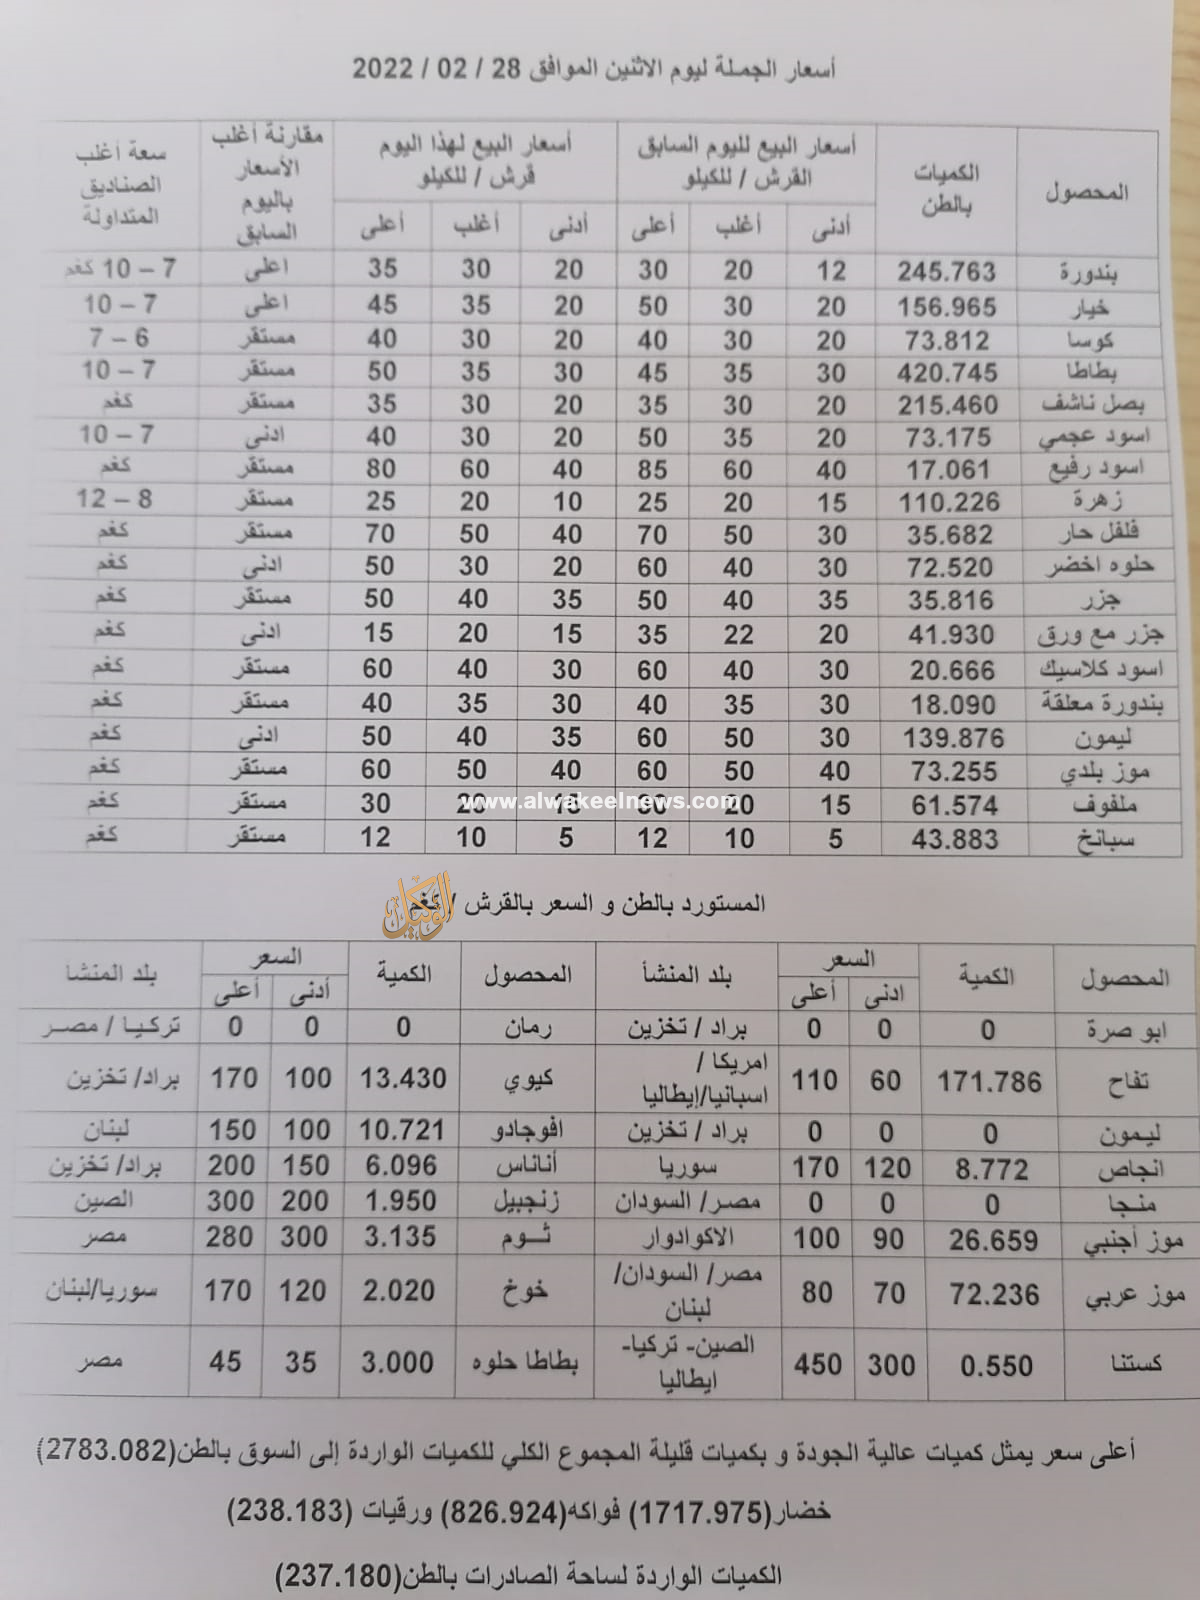 أسعار الجملة ليوم الاثنين الموافق 28 / 02 / 2022
المحصول | الكميات بالطن | أسعار البيع لليوم السابق القرش / للكيلو | أسعار البيع لهذا اليوم قرش / للكيلو | مقارنة أغلب الأسعار باليوم السابق | سعة أغلب الصناديق المتداولة
أدنى | أغلب | أعلى | أدنى | أغلب | أعلى
بندورة | 245.763 | 12 | 20 | 30 | 20 | 30 | 35 | اعلى | 7 – 10 كغم
خيار | 156.965 | 20 | 30 | 50 | 20 | 35 | 45 | اعلى | 7 – 10
كوسا | 73.812 | 20 | 30 | 40 | 20 | 30 | 40 | مستقر | 6 – 7
بطاطا | 420.745 | 30 | 35 | 45 | 30 | 35 | 50 | مستقر | 7 – 10
بصل ناشف | 215.460 | 20 | 30 | 35 | 20 | 30 | 35 | مستقر | كغم
اسود عجمي | 73.175 | 20 | 35 | 50 | 20 | 30 | 40 | ادنى | 7 – 10
اسود رفيع | 17.061 | 40 | 60 | 85 | 40 | 60 | 80 | مستقر | كغم
زهرة | 110.226 | 15 | 20 | 25 | 10 | 20 | 25 | مستقر | 8 – 12
فلفل حار | 35.682 | 30 | 50 | 70 | 40 | 50 | 70 | مستقر | كغم
حلوه اخضر | 72.520 | 30 | 40 | 60 | 20 | 30 | 50 | ادنى | كغم
جزر | 35.816 | 35 | 40 | 50 | 35 | 40 | 50 | مستقر | كغم
جزر مع ورق | 41.930 | 20 | 22 | 35 | 15 | 20 | 15 | ادنى | كغم
اسود كلاسيك | 20.666 | 30 | 40 | 60 | 30 | 40 | 60 | مستقر | كغم
بندورة معلقة | 18.090 | 30 | 35 | 40 | 30 | 35 | 40 | مستقر | كغم
ليمون | 139.876 | 30 | 50 | 60 | 35 | 40 | 50 | ادنى | كغم
موز بلدي | 73.255 | 40 | 50 | 60 | 40 | 50 | 60 | مستقر | كغم
ملفوف | 61.574 | 15 | 20 | 30 | 15 | 20 | 30 | مستقر | كغم
www.alwakeelnews.com
سبانخ | 43.883 | 5 | 10 | 12 | 5 | 10 | 12 | مستقر | كغم
المستورد بالطن و السعر بالقرش / كغم
الوكيل
المحصول | الكمية | السعر | بلد المنشأ | المحصول | الكمية | السعر | بلد المنشأ
ادنى | أعلى | أدنى | أعلى
ابو صرة | 0 | 0 | 0 | براد / تخزين | رمان | 0 | 0 | 0 | تركيا / مصر
تفاح | 171.786 | 60 | 110 | امريكا / اسبانيا/إيطاليا | كيوي | 13.430 | 100 | 170 | براد/ تخزين
ليمون | 0 | 0 | 0 | براد / تخزين | افوجادو | 10.721 | 100 | 150 | لبنان
انجاص | 8.772 | 120 | 170 | سوريا | أناناس | 6.096 | 150 | 200 | براد/ تخزين
منجا | 0 | 0 | 0 | مصر/ السودان | زنجبيل | 1.950 | 200 | 300 | الصين
موز أجنبي | 26.659 | 90 | 100 | الاكوادوار | ثـوم | 3.135 | 300 | 280 | مصر
موز عربي | 72.236 | 70 | 80 | مصر/ السودان/ لبنان | خوخ | 2.020 | 120 | 170 | سوريا/لبنان
كستنا | 0.550 | 300 | 450 | الصين- تركيا- ايطاليا | بطاطا حلوه | 3.000 | 35 | 45 | مصر
أعلى سعر يمثل كميات عالية الجودة و بكميات قليلة المجموع الكلي للكميات الواردة إلى السوق بالطن(2783.082)
خضار(1717.975) فواكه(826.924) ورقيات (238.183)
الكميات الواردة لساحة الصادرات بالطن(237.180)